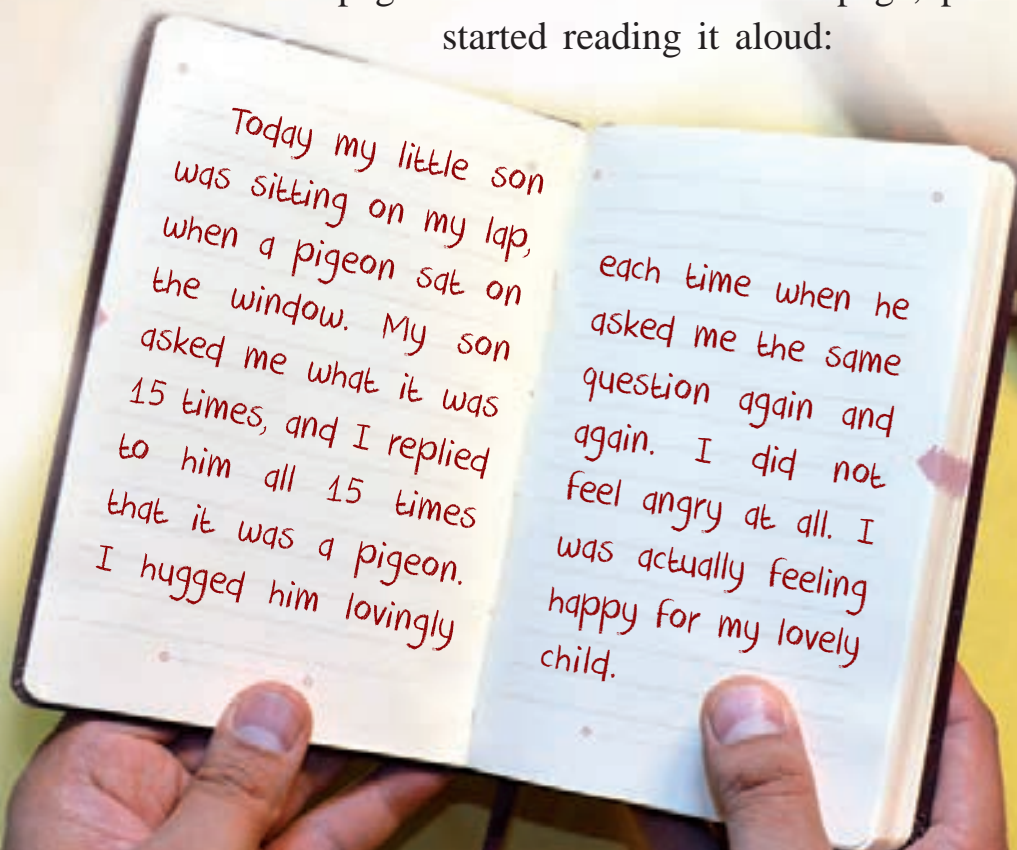 started reading it aloud:
Today my little son
was sitting on my lap,
when a pigeon sat on
the window. My son
asked me what it was
15 times, and I replied
to him all 15 times
that it was a pigeon.
I hugged him lovingly
each time when he
asked me the same
question again and
again. I did not
feel angry at all. I
was actually feeling
happy for my lovely
child.